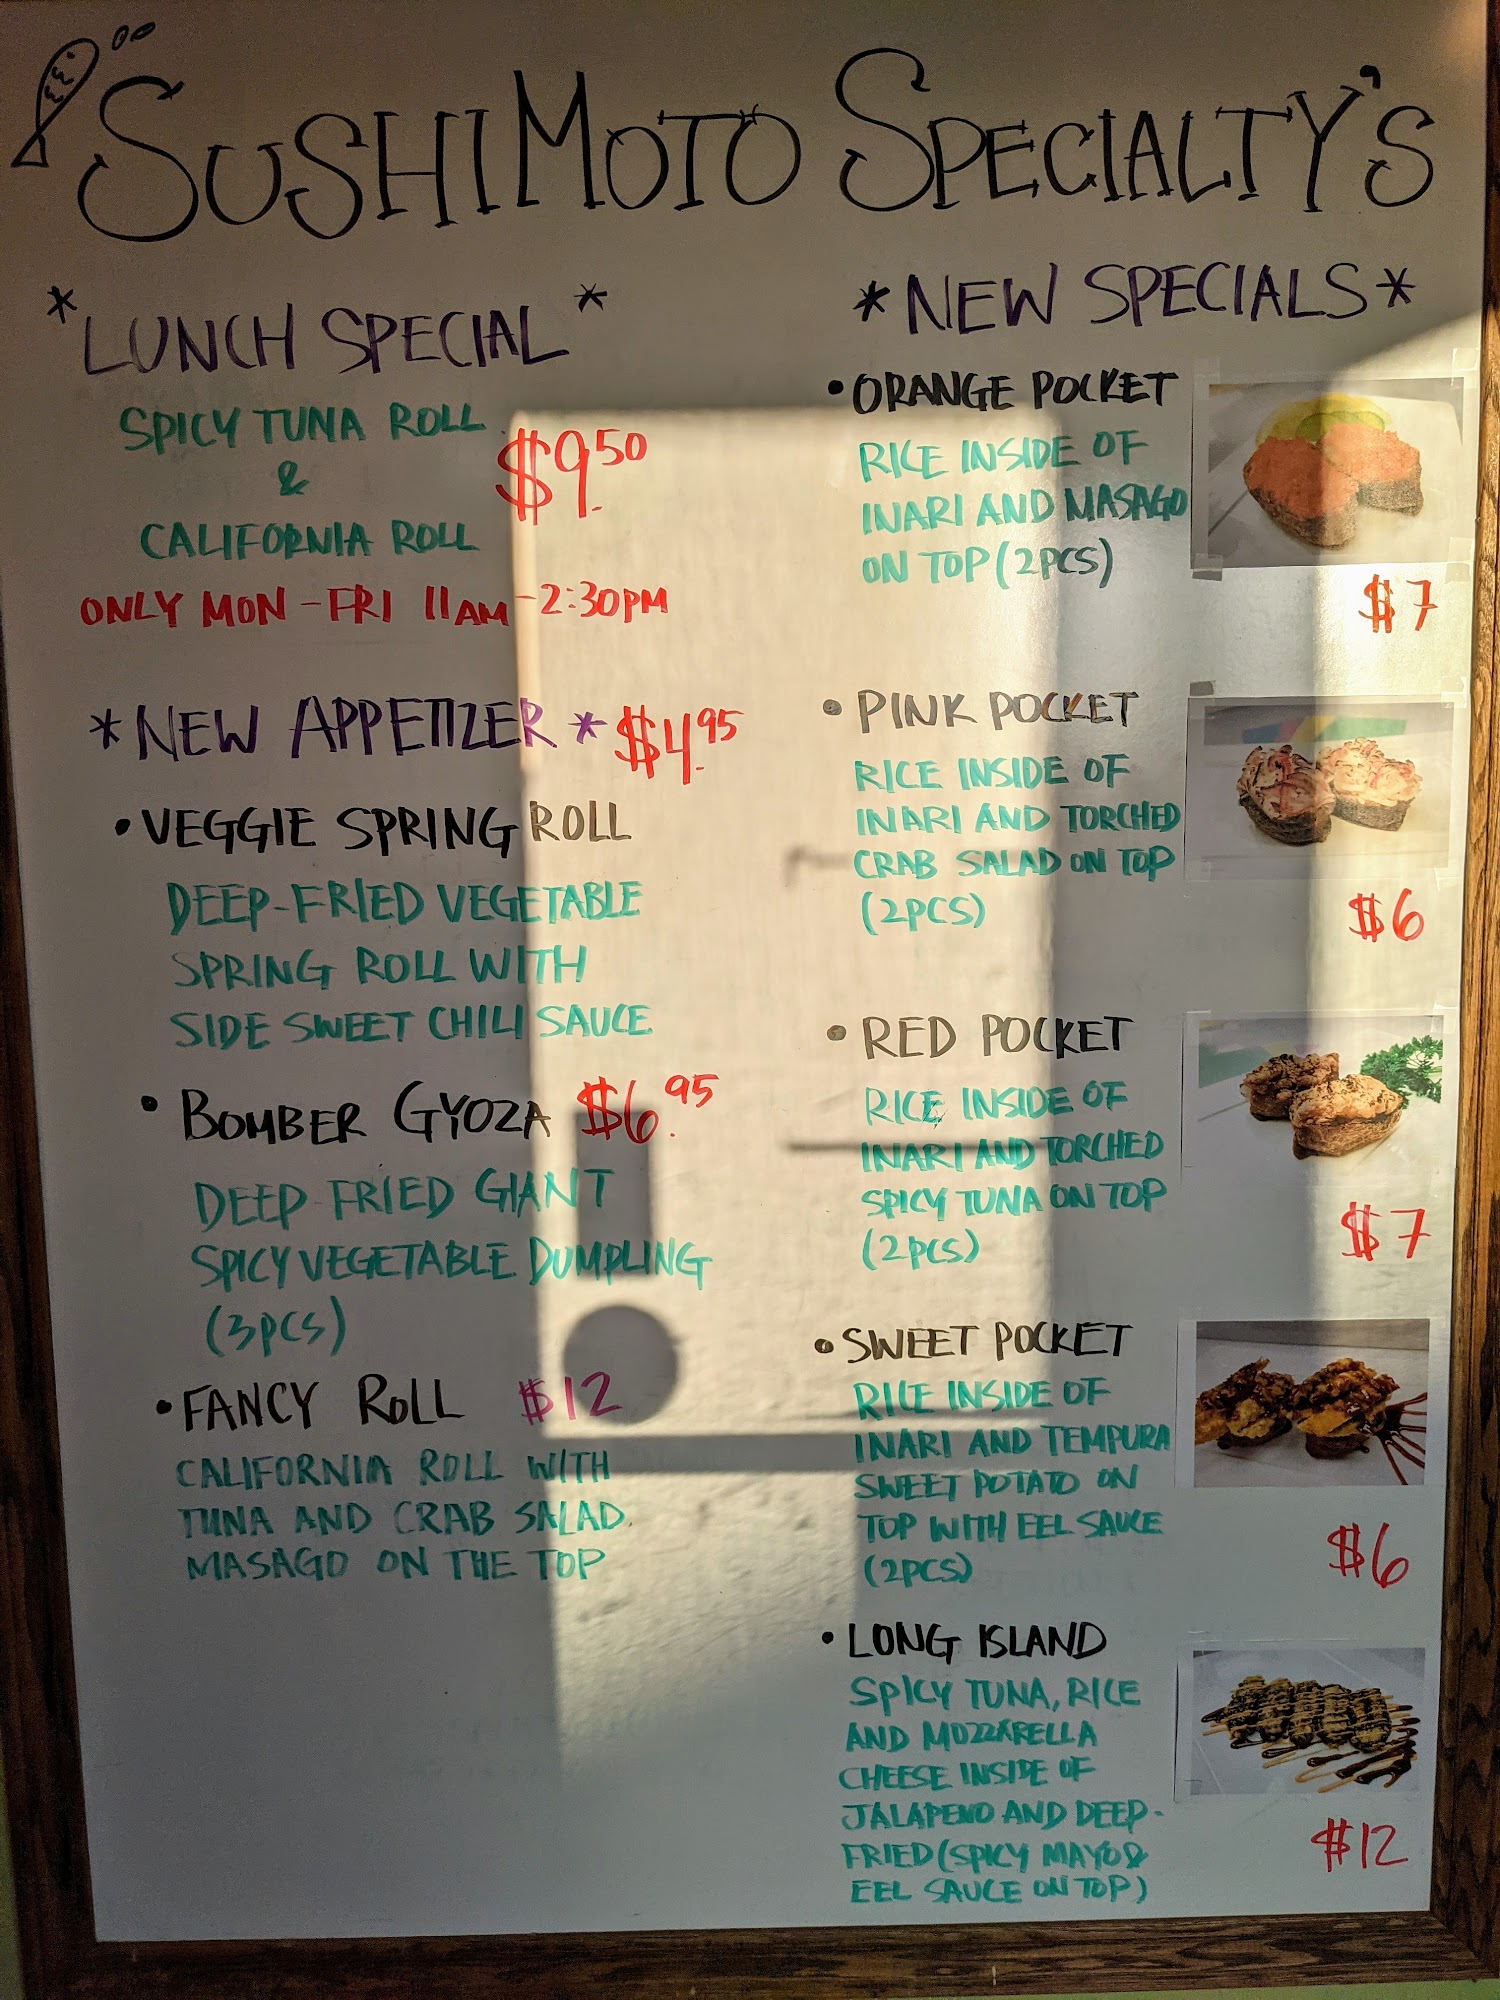 SUSHI MOTO SPECIALTY'S
*LUNCH SPECIAL*
SPICY TUNA ROLL
&
CALIFORNIA ROLL
$9.50
ONLY MON-FRI 11AM-2:30PM
*NEW APPETIZER* $4.95
• VEGGIE SPRING ROLL
DEEP-FRIED VEGETABLE
SPRING ROLL WITH
SIDE SWEET CHILI SAUCE
• BOMBER GYOZA $6.95
DEEP FRIED GIANT
SPICY VEGETABLE DUMPLING
(3PCS)
• FANCY ROLL $12
CALIFORNIA ROLL WITH
TUNA AND CRAB SALAD.
MASAGO ON THE TOP
*NEW SPECIALS*
• ORANGE POCKET
RICE INSIDE OF
INARI AND MASAGO
ON TOP (2PCS)
$7
• PINK POCKET
RICE INSIDE OF
INARI AND TORCHED
CRAB SALAD ON TOP
(2PCS)
$6
• RED POCKET
RICE INSIDE OF
INARI AND TORCHED
SPICY TUNA ON TOP
(2PCS)
$7
• SWEET POCKET
RICE INSIDE OF
INARI AND TEMPURA
SWEET POTATO ON
TOP WITH EEL SAUCE
(2PCS)
$6
• LONG ISLAND
SPICY TUNA, RICE
AND MOZZARELLA
CHEESE INSIDE OF
JALAPENO AND DEEP-
FRIED (SPICY MAYO &
EEL SAUCE ON TOP)
$12